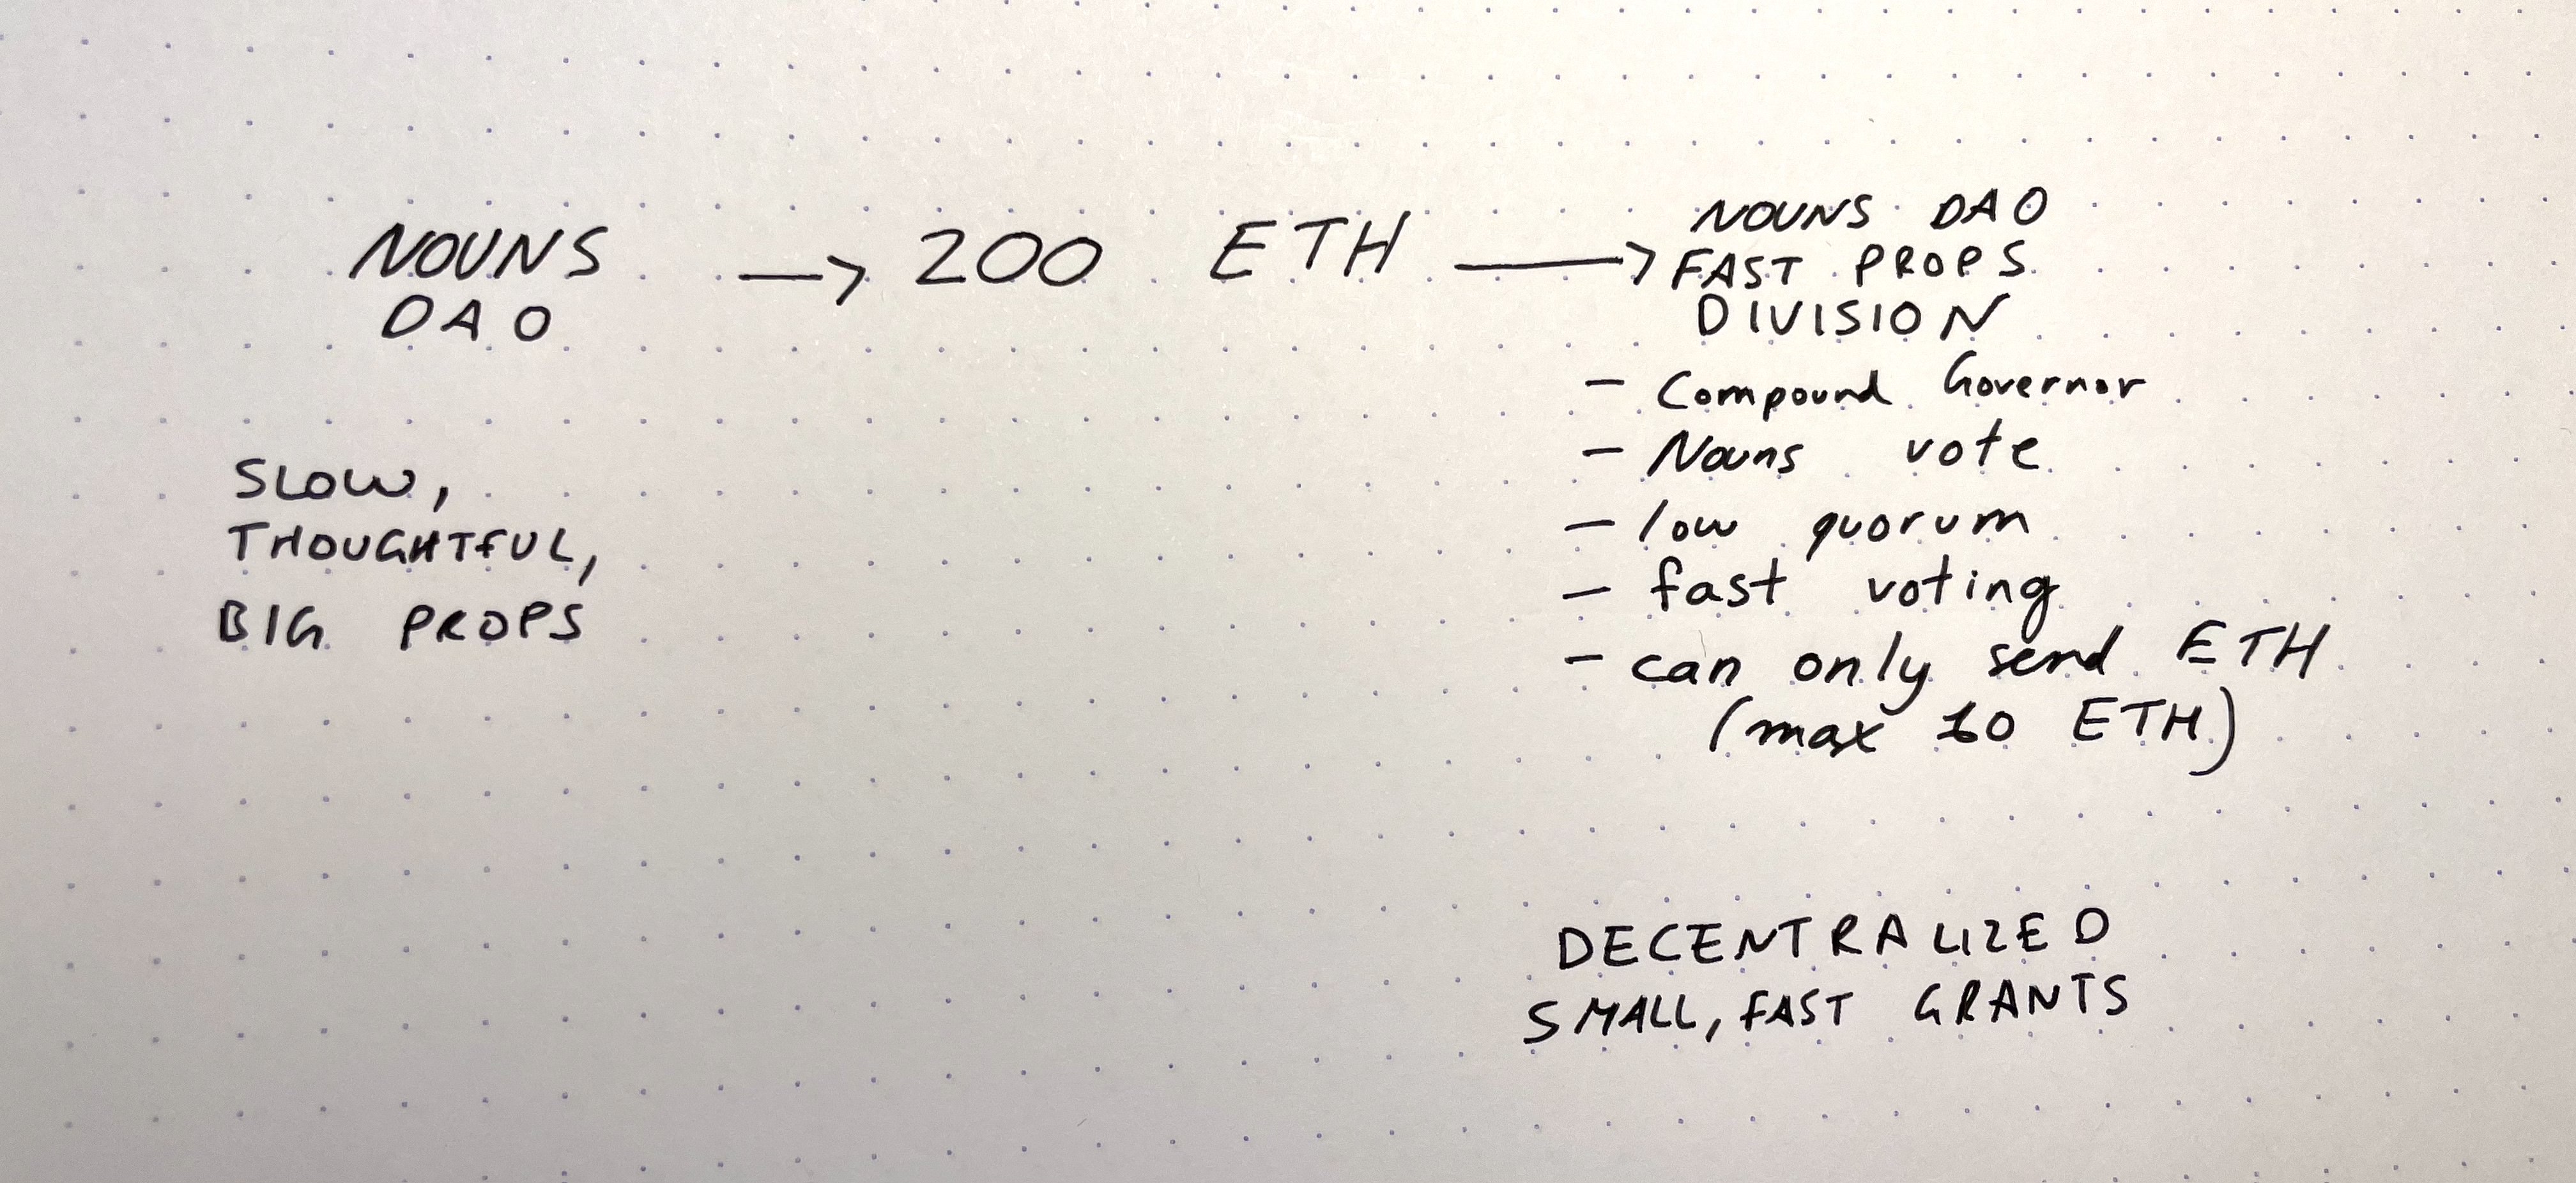 NOUNS
DAO
→ 200 ETH →
NOUNS DAO
FAST PROPS
DIVISION
- Compound Governor
- Nouns vote
- low quorum
- fast voting
- can only send ETH
(max ETH)
SLOW,
THOUGHTFUL,
BIG PROPS
DECENTRALIZED
SMALL, FAST GRANTS